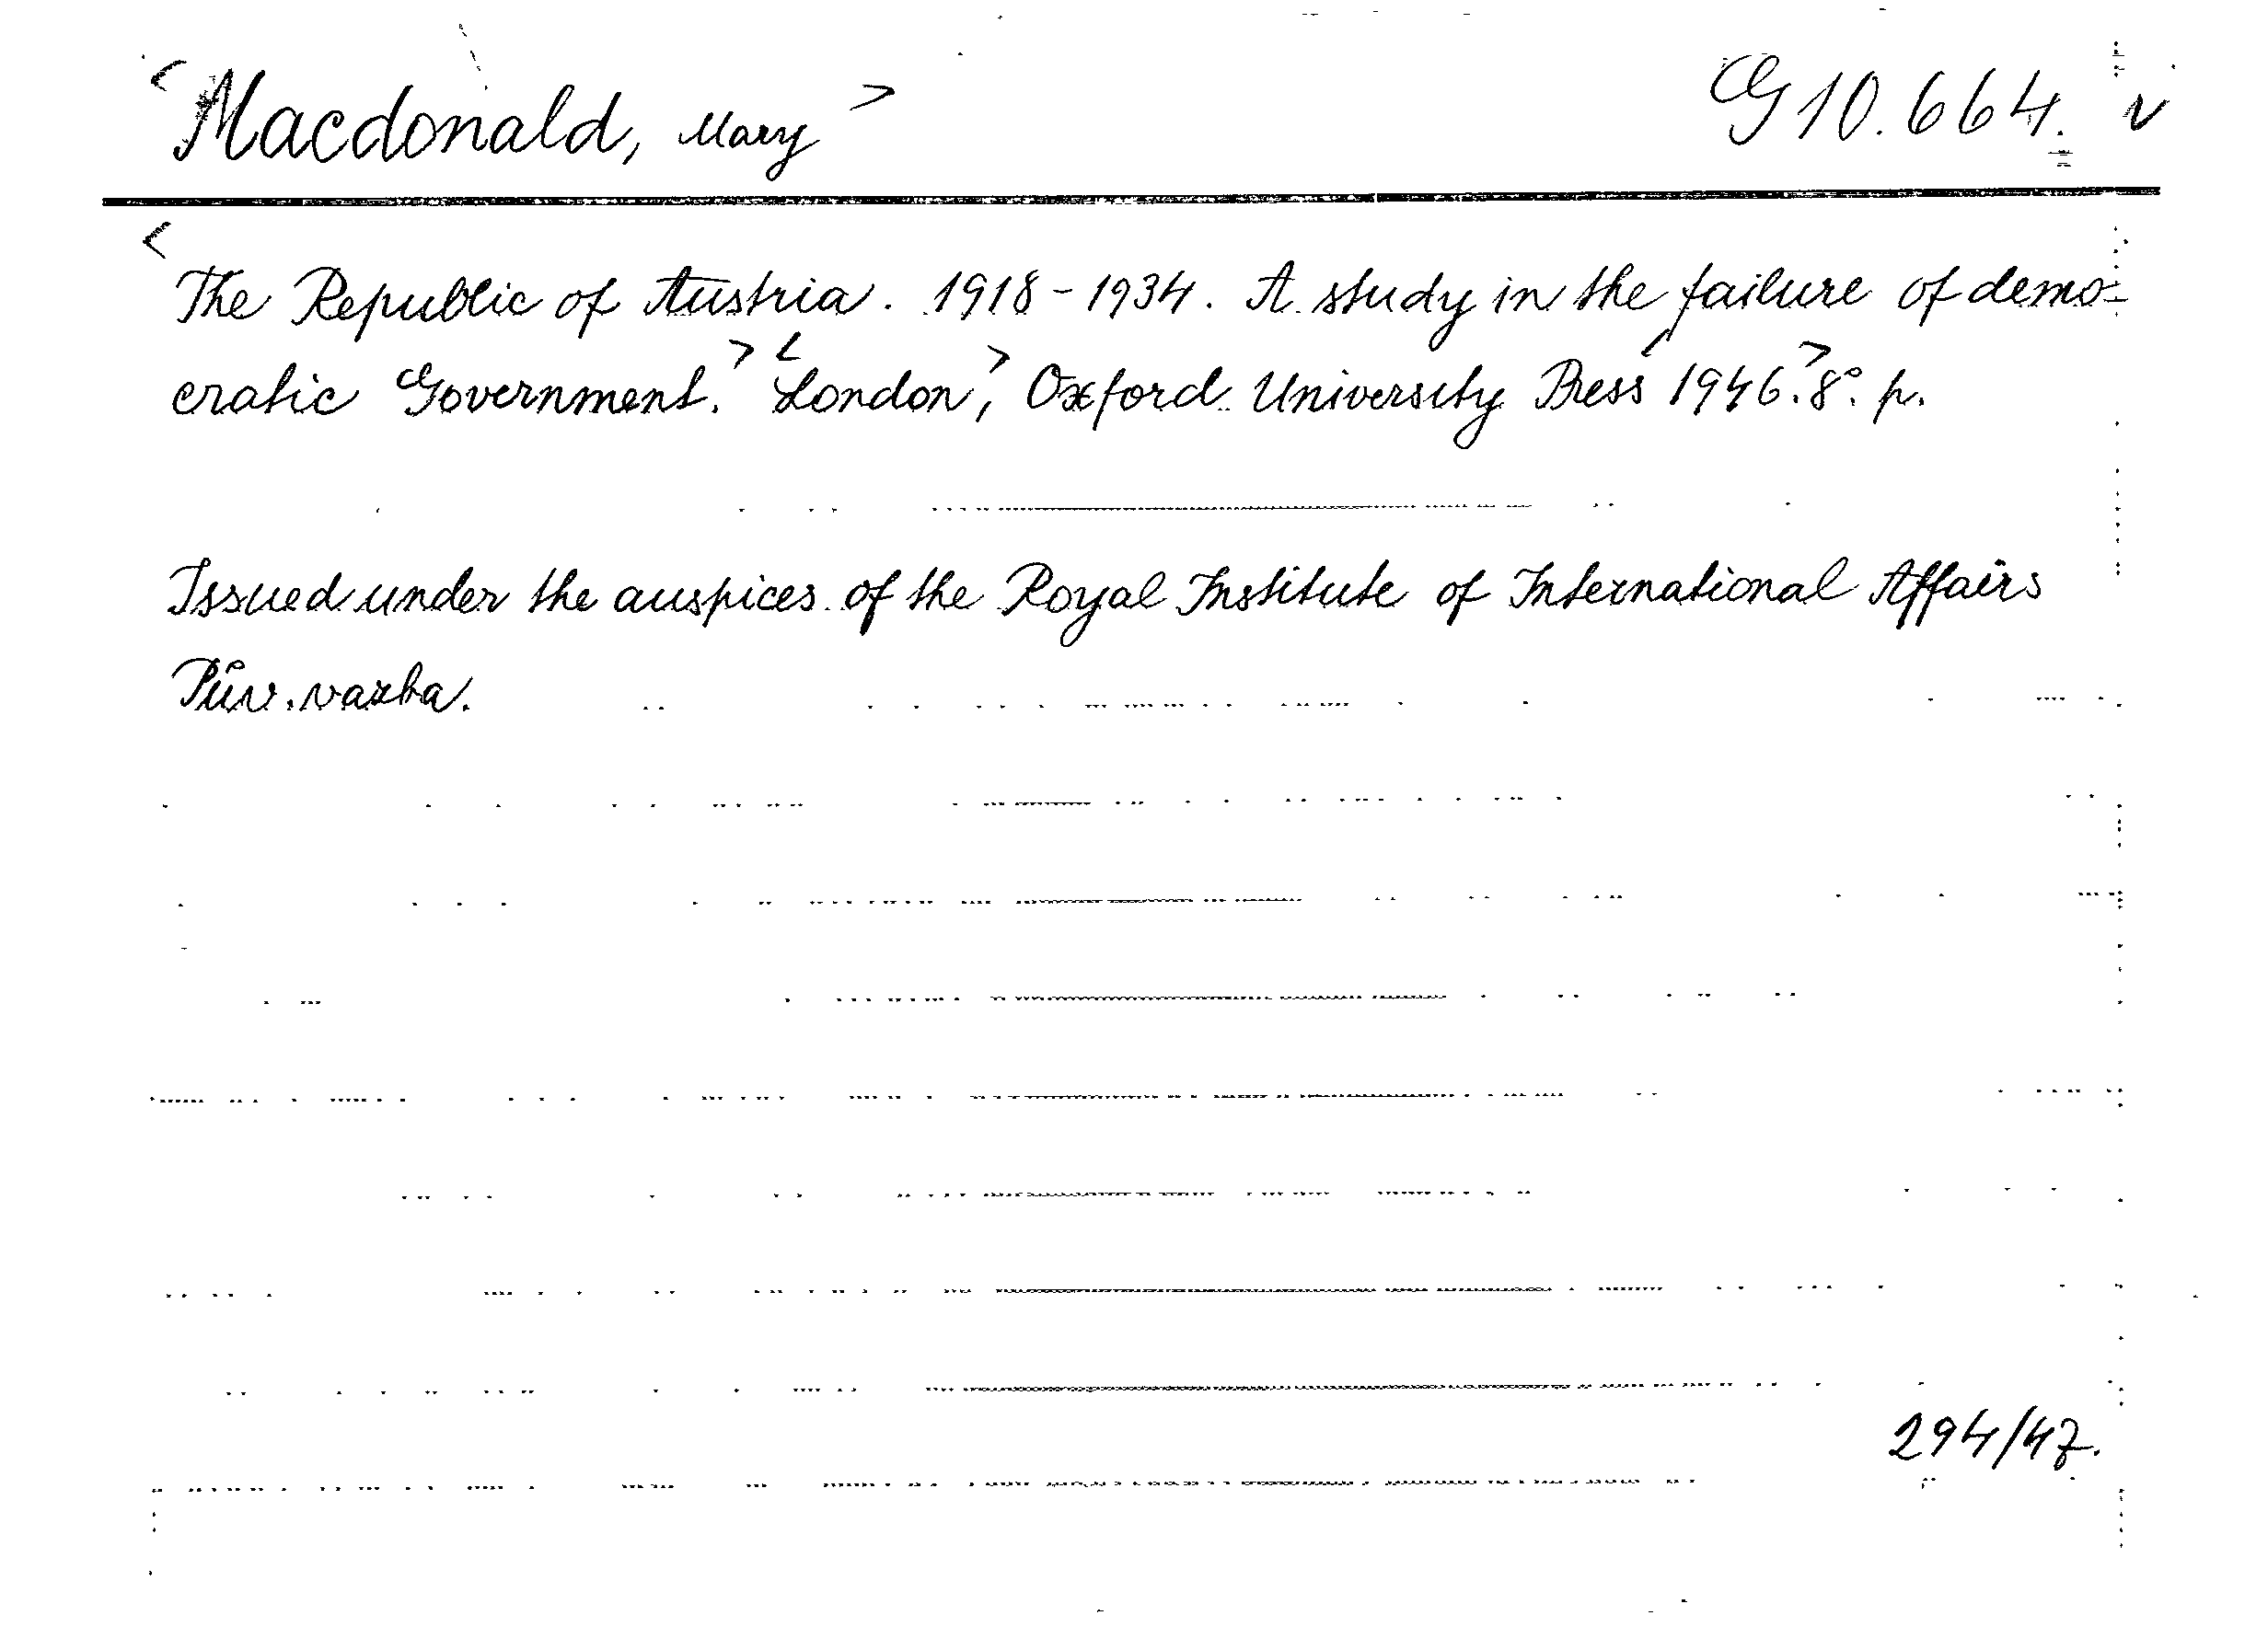 <Macdonald, Mary> G 10.664. v
<The Republic of Austria. 1918-1934. A study in the failure of demo-
cratic Government.> <London,> Oxford University Press <1946.> 8°. p.
Issued under the auspices of the Royal Institute of International Affairs
Pův. vazba.
294/47.